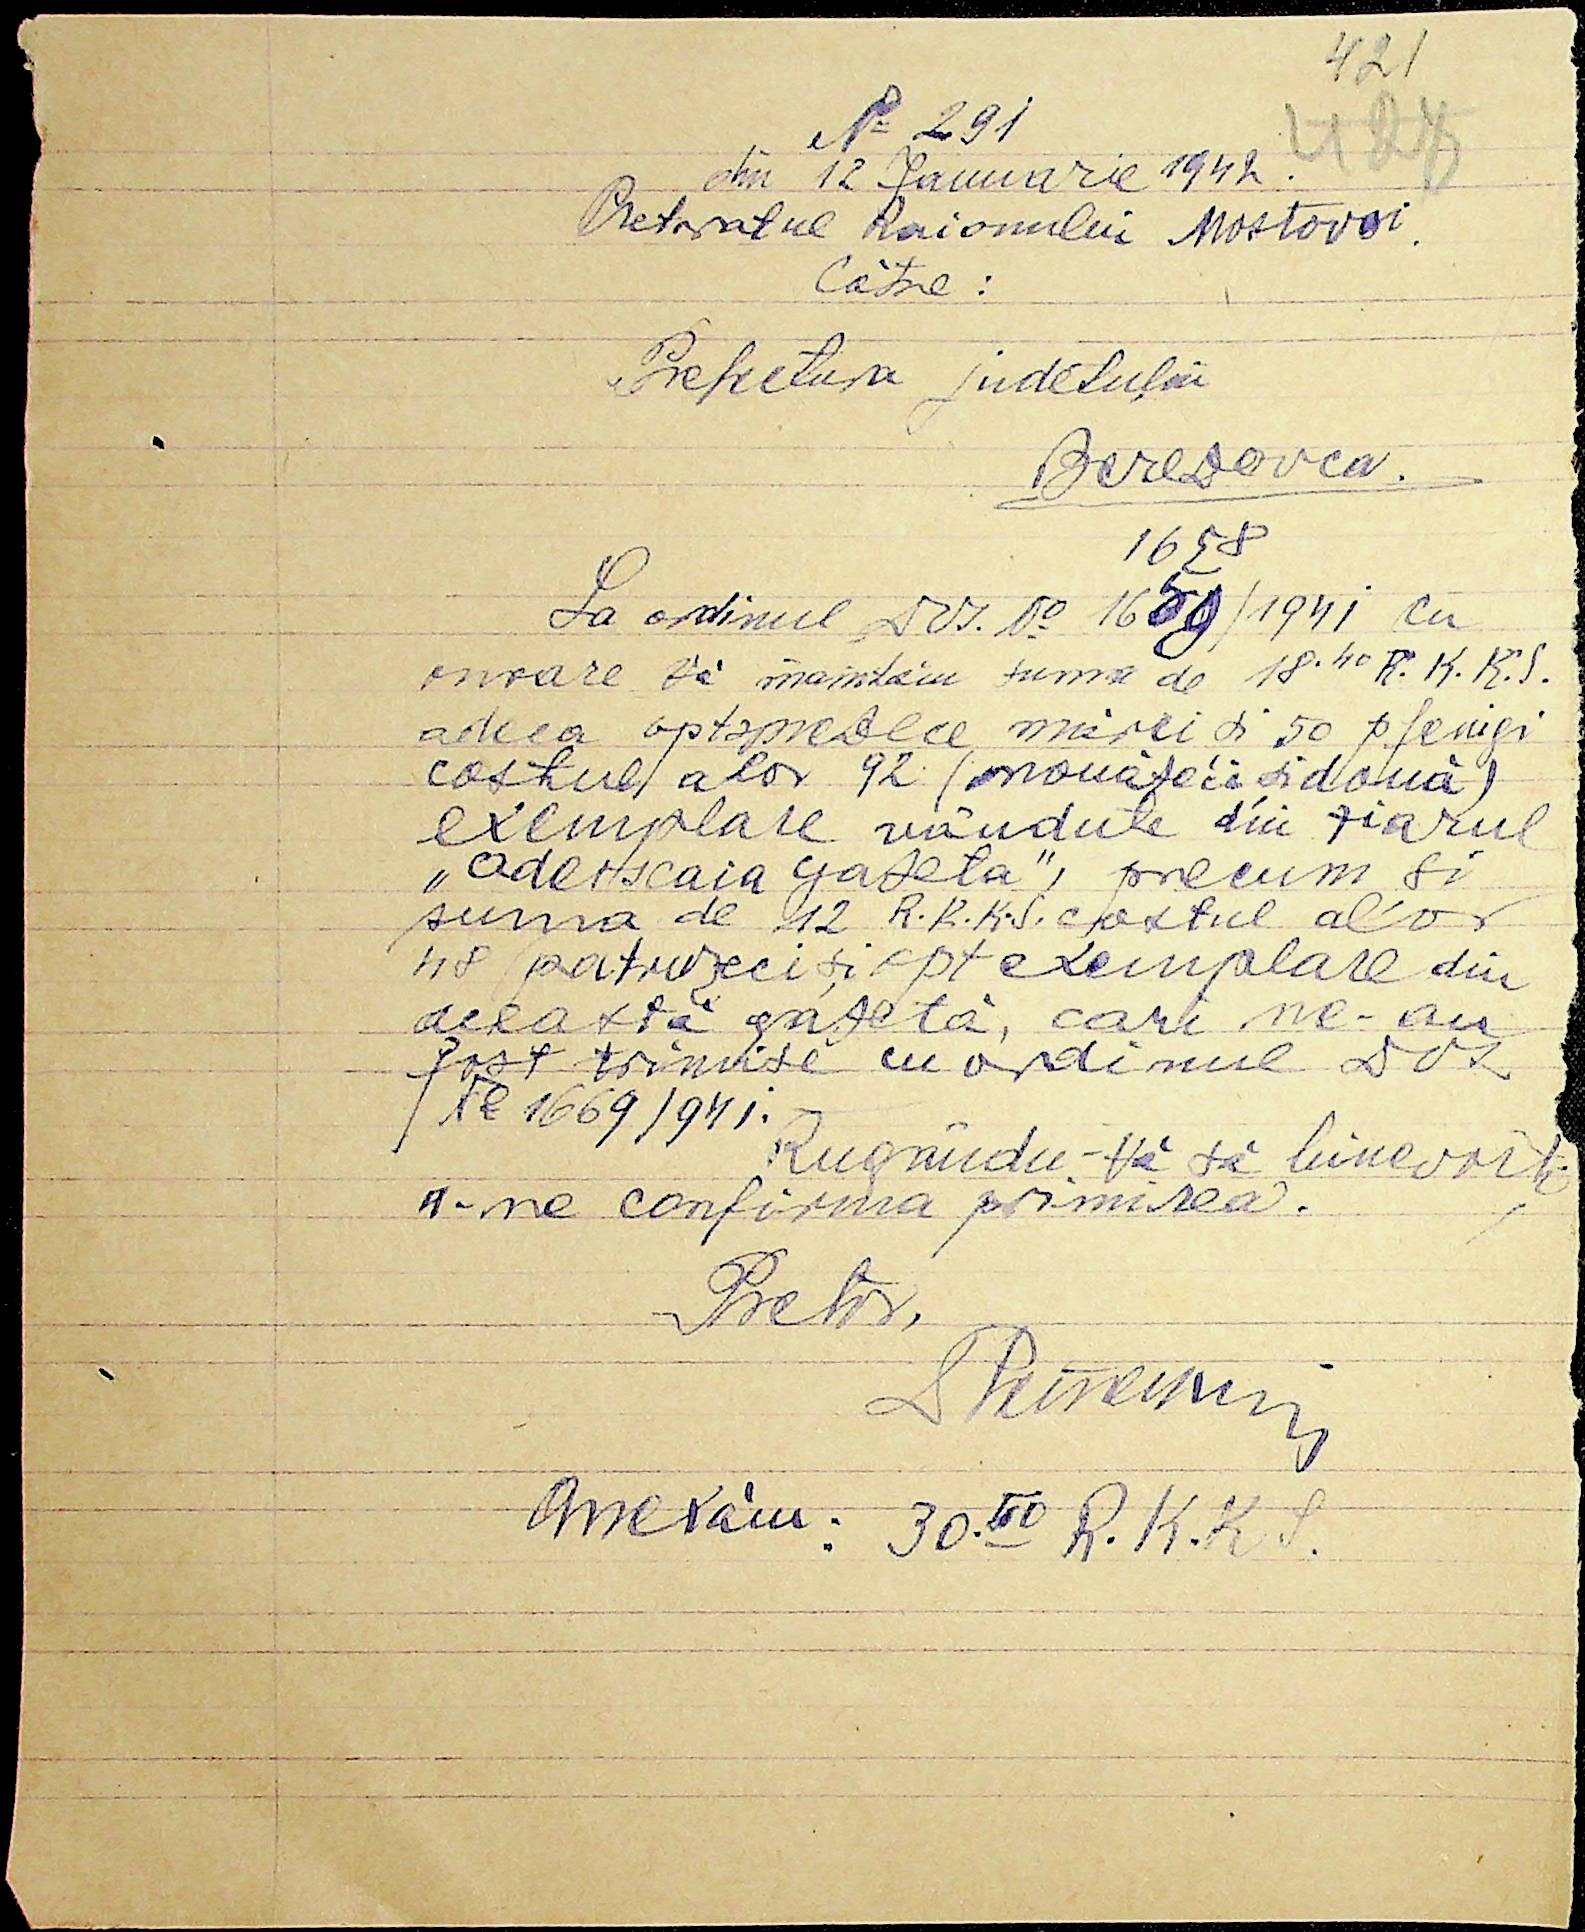 421
№ 291
din 12 Januarie 1942.
Pretoratul Raionului Mostovoi.
Către:
Prefectura județului
Berezovca.
1658
La ordinul DVs. № 1659/1941 cu
onoare vă înaintăm suma de 18.40 R.K.K.S.
adica optsprezece mărci și 50 pfenigi
costul alor 92 (nouăzeci și două)
exemplare vândute din ziarul
„Odesscaia gazeta", precum și
suma de 12 R.K.K.S. costul alor
48 patruzeci și opt exemplare din
această gazetă, cari ne-au
fost trimise cu ordinul DVs
№ 1669/941.
Rugându-vă să binevoiți
a-ne confirma primirea.
Pretor,
Anexăm: 30.50 R.K.K.S.